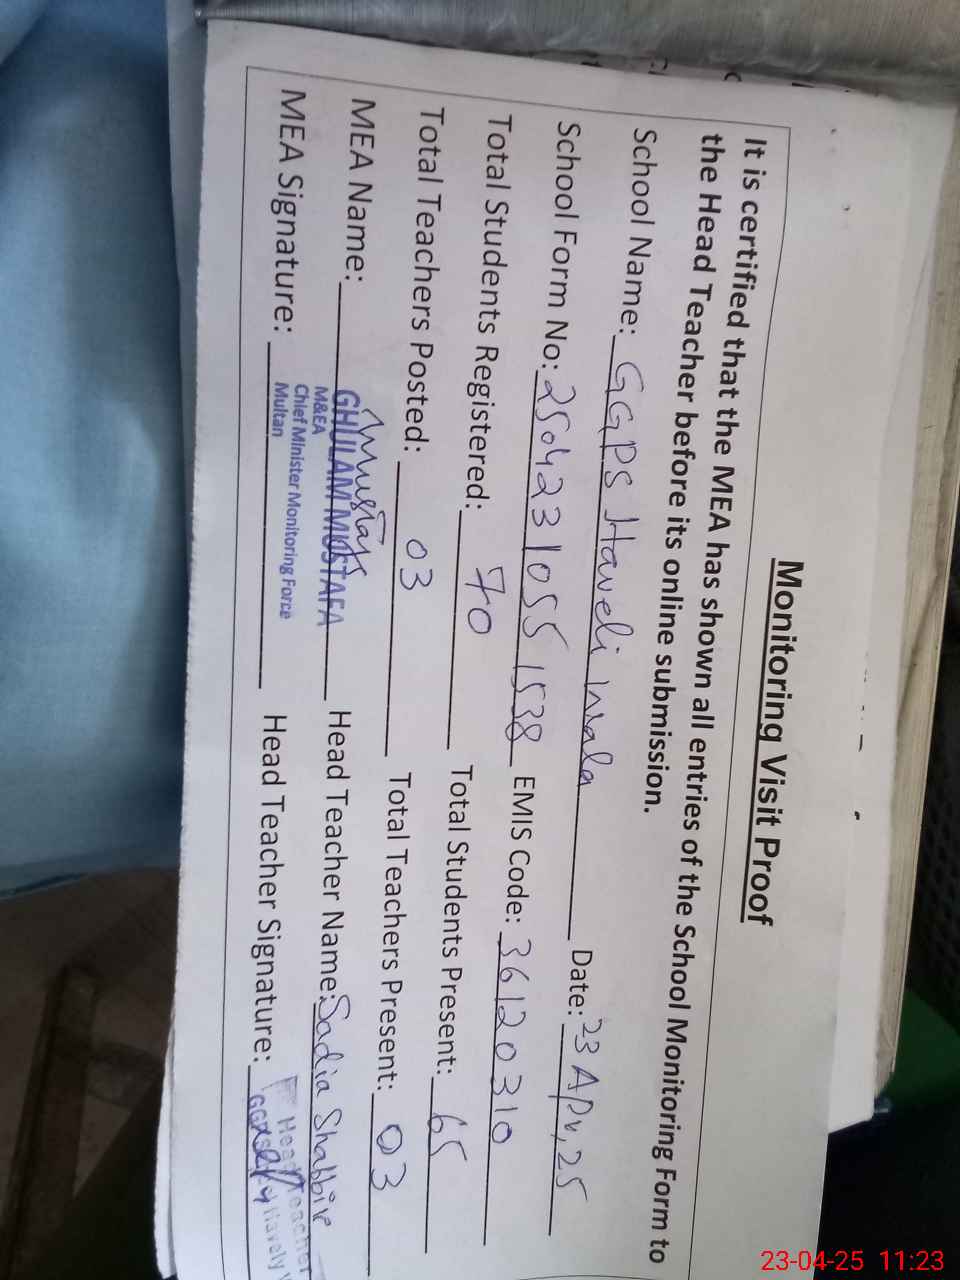 Monitoring Visit Proof
It is certified that the MEA has shown all entries of the School Monitoring Form to
the Head Teacher before its online submission.
School Name: GGPS Haveli Wala Date: 23 Apr, 25
School Form No: 25042310551538 EMIS Code: 36120310
Total Students Registered: 70 Total Students Present: 65
Total Teachers Posted: 03 Total Teachers Present: 03
MEA Name: GHULAM MUSTAFA Head Teacher Name: Sadia Shabbir
M&EA
Chief Minister Monitoring Force
Multan
MEA Signature: Head Teacher Signature:
Head Teacher
23-04-25 11:23